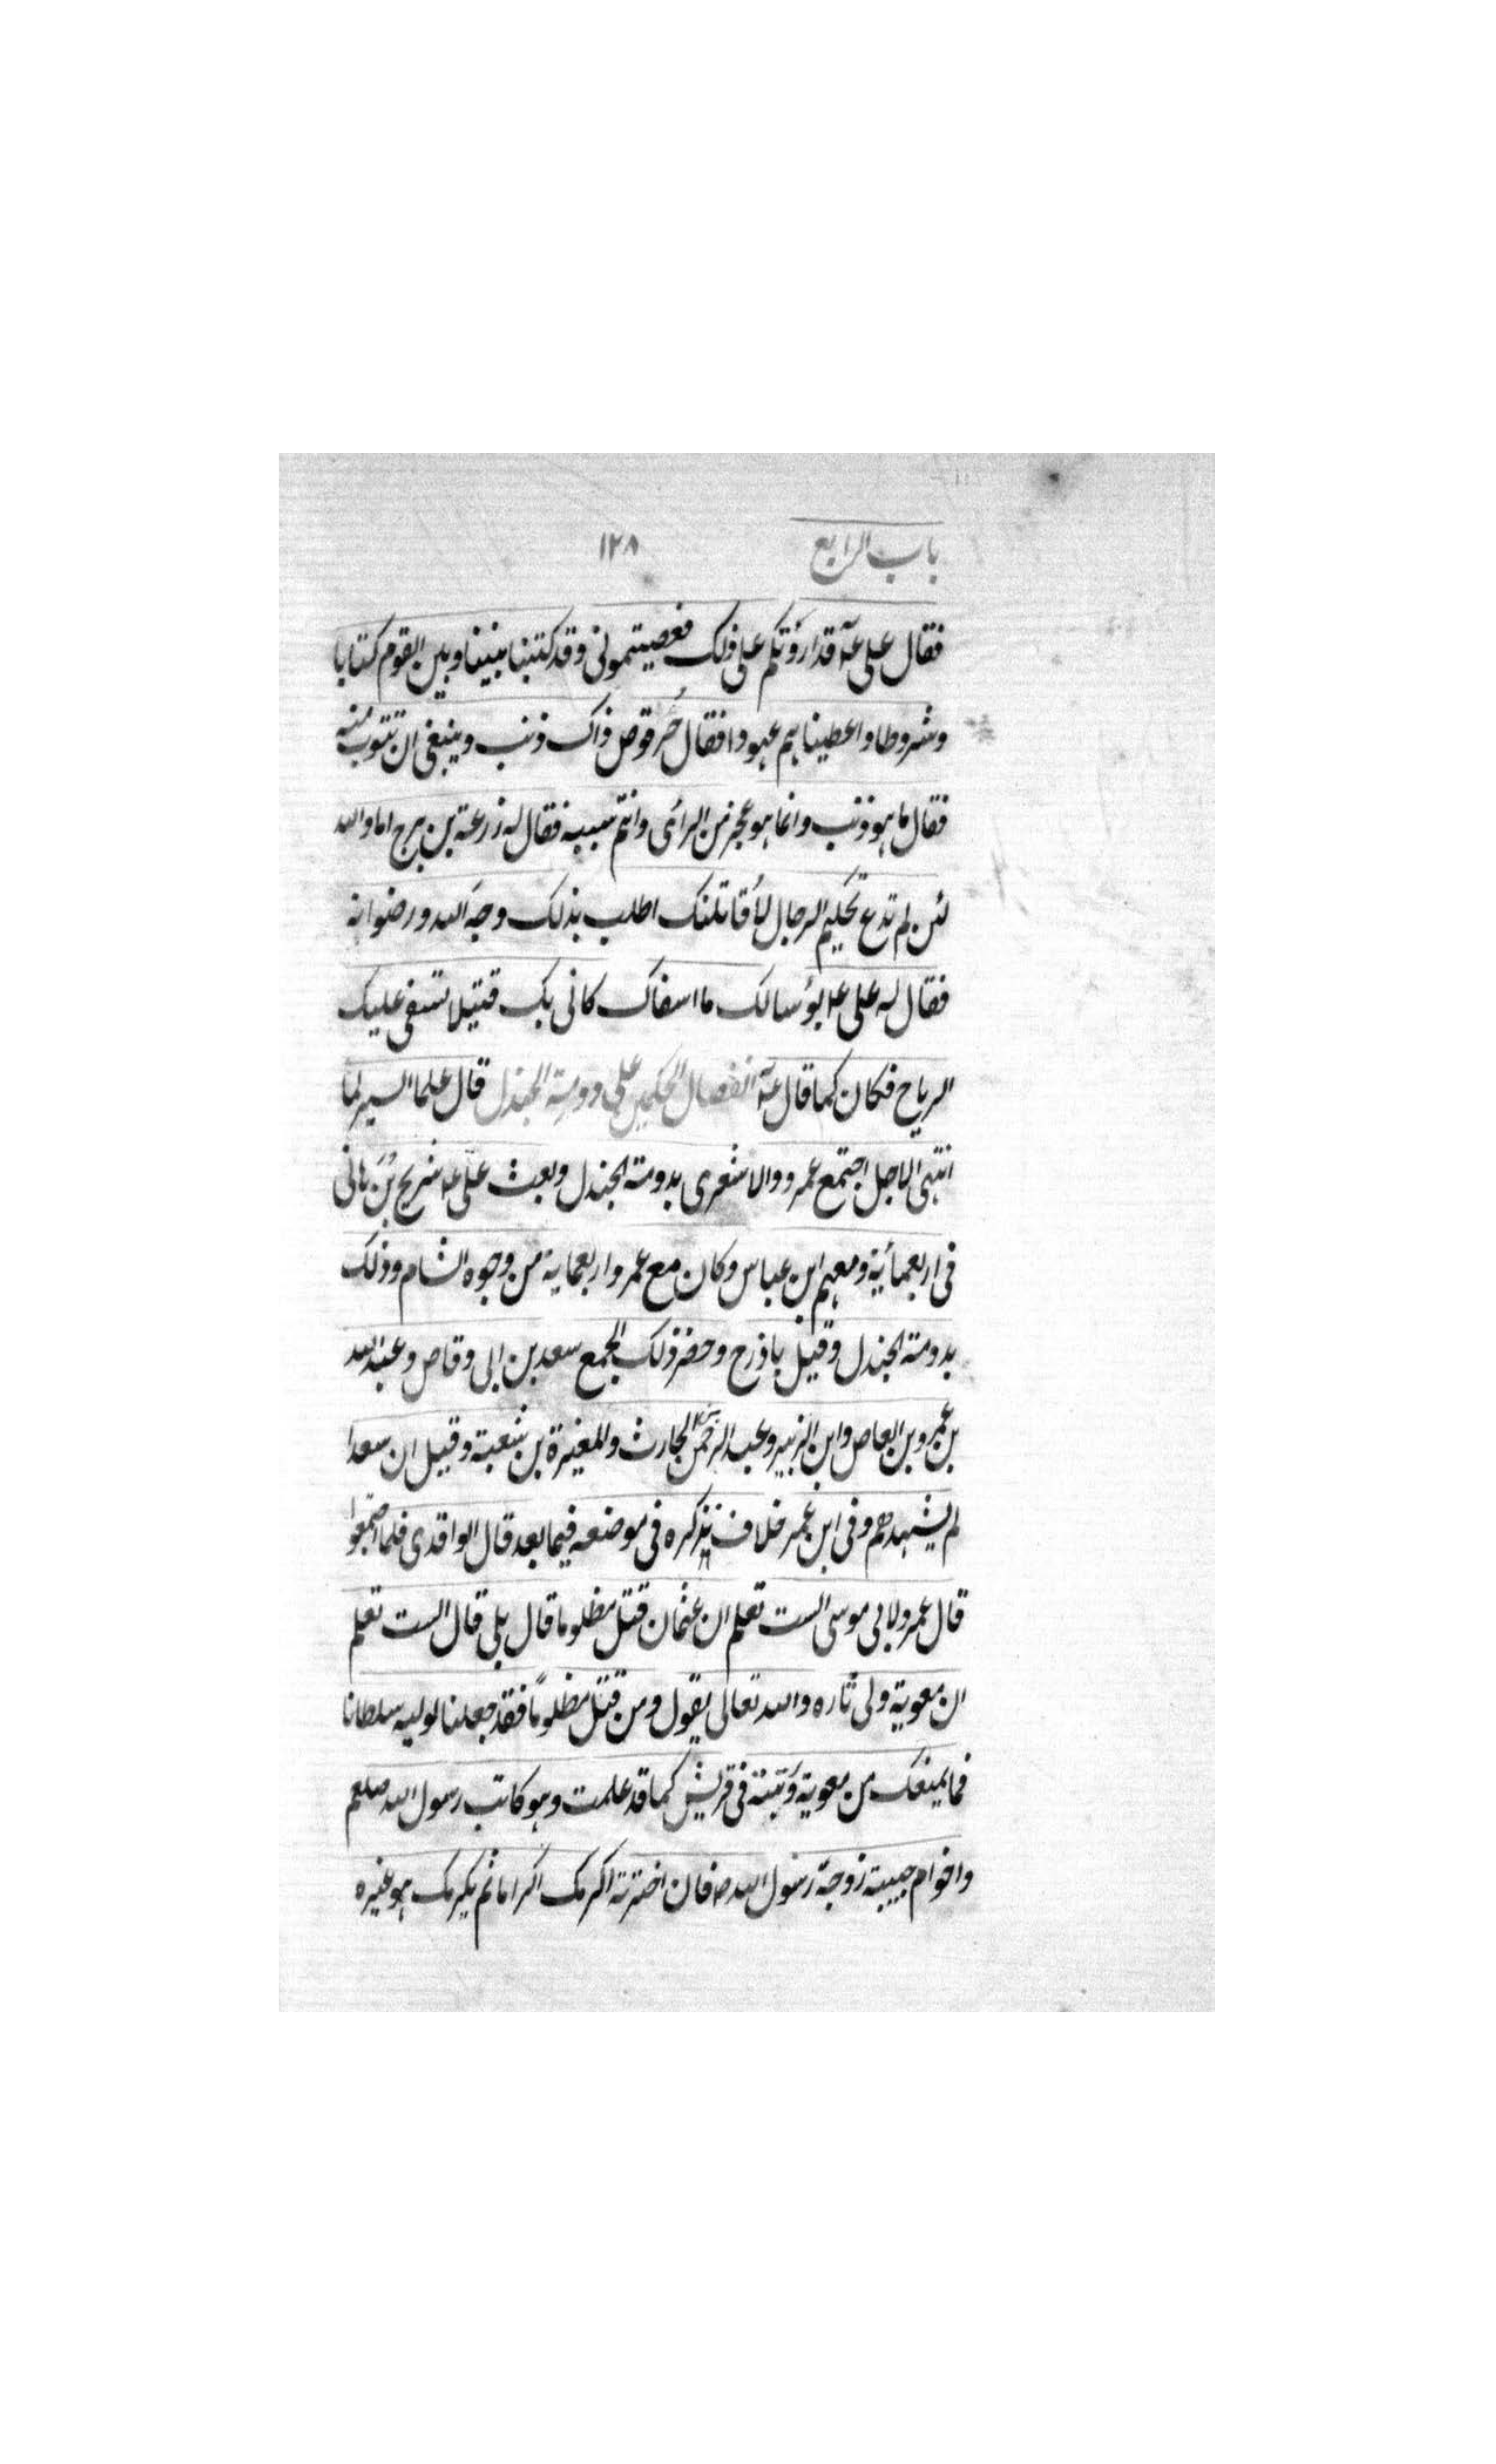 باب الرابع ١٢٨
فقال علی عہ قد ارودتکم علی ذلک فعصیتمونی وقد کتبنا بیننا وبین القوم کتابا
وشروطا واعطیناہم عہودا فقال حُرقوص ذاک ذنب وینبغی ان تتوب منہ
فقال ما ہو ذنب وانما ہو عجز من الرائ وانتم سببہ فقال لہ زرعة بن برج اما واللہ
لئن لم تدع تحکیم الرجال لاُقاتلنک اطلب بذلک وجہَ اللہ ورضوانہ
فقال لہ علی عہ بؤسا لک ما اسفاک کانی بک قتیلا تسفی علیک
الریاح فکان کما قال عہ انفصال الحکمین علی دومة الجندل قال علما السیر لما
انتہی الاجل اجتمع عمرو والاشعری بدومة الجندل وبعث علی عہ شریح بن ہانی
فی اربعمائیة ومعہم ابن عباس وکان مع عمرو اربعمایة من وجوہ الشام وذلک
بدومة الجندل وقیل باذرح وحضر ذلک الجمع سعد بن ابی وقاص وعبد اللہ
بن عمرو بن العاص وابن الزبیر وعبد الرحمن بن الحارث والمغیرة بن شعبة وقیل ان سعدا
لم یشہدہم وفی ابن عمر خلاف نذکرہ فی موضعہ فیما بعد قال الواقدی فلما اجتمعوا
قال عمرو لابی موسی الست تعلم ان عثمان قتل مظلوما قال بلی قال الست تعلم
ان معویة ولی ثارہ واللہ تعالی یقول ومن قتل مظلوماً فقد جعلنا لولیہ سلطانا
فما یمنعک من معویة وَبَیتہ فی قریش کما قد علمت وہو کاتب رسول اللہ صلعم
واخو ام حبیبة زوجة رسول اللہ صہ فان اخترتہ اکرمک اکراما لم یکرمک ہو غیرہ